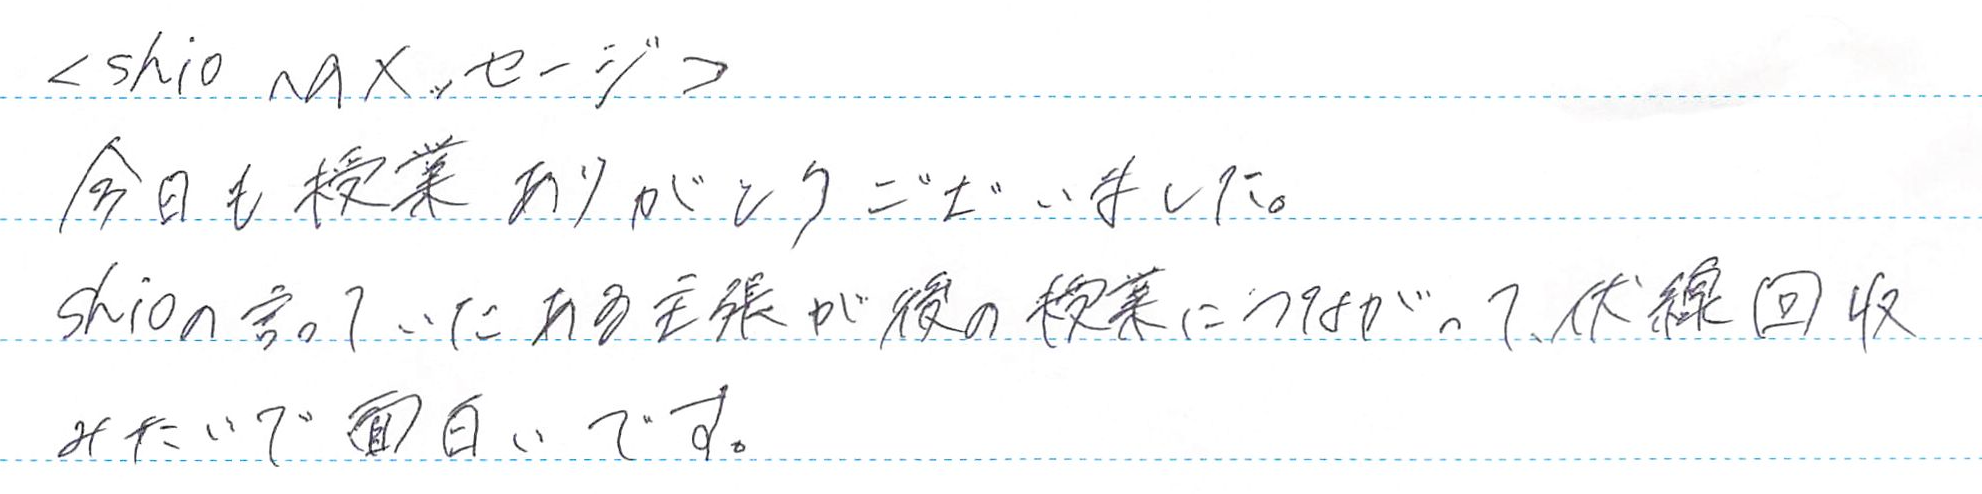 <shioへのメッセージ>
今日も授業ありがとうございました。
shioの言っていたある主張が後の授業につながって、伏線回収
みたいで面白いです。